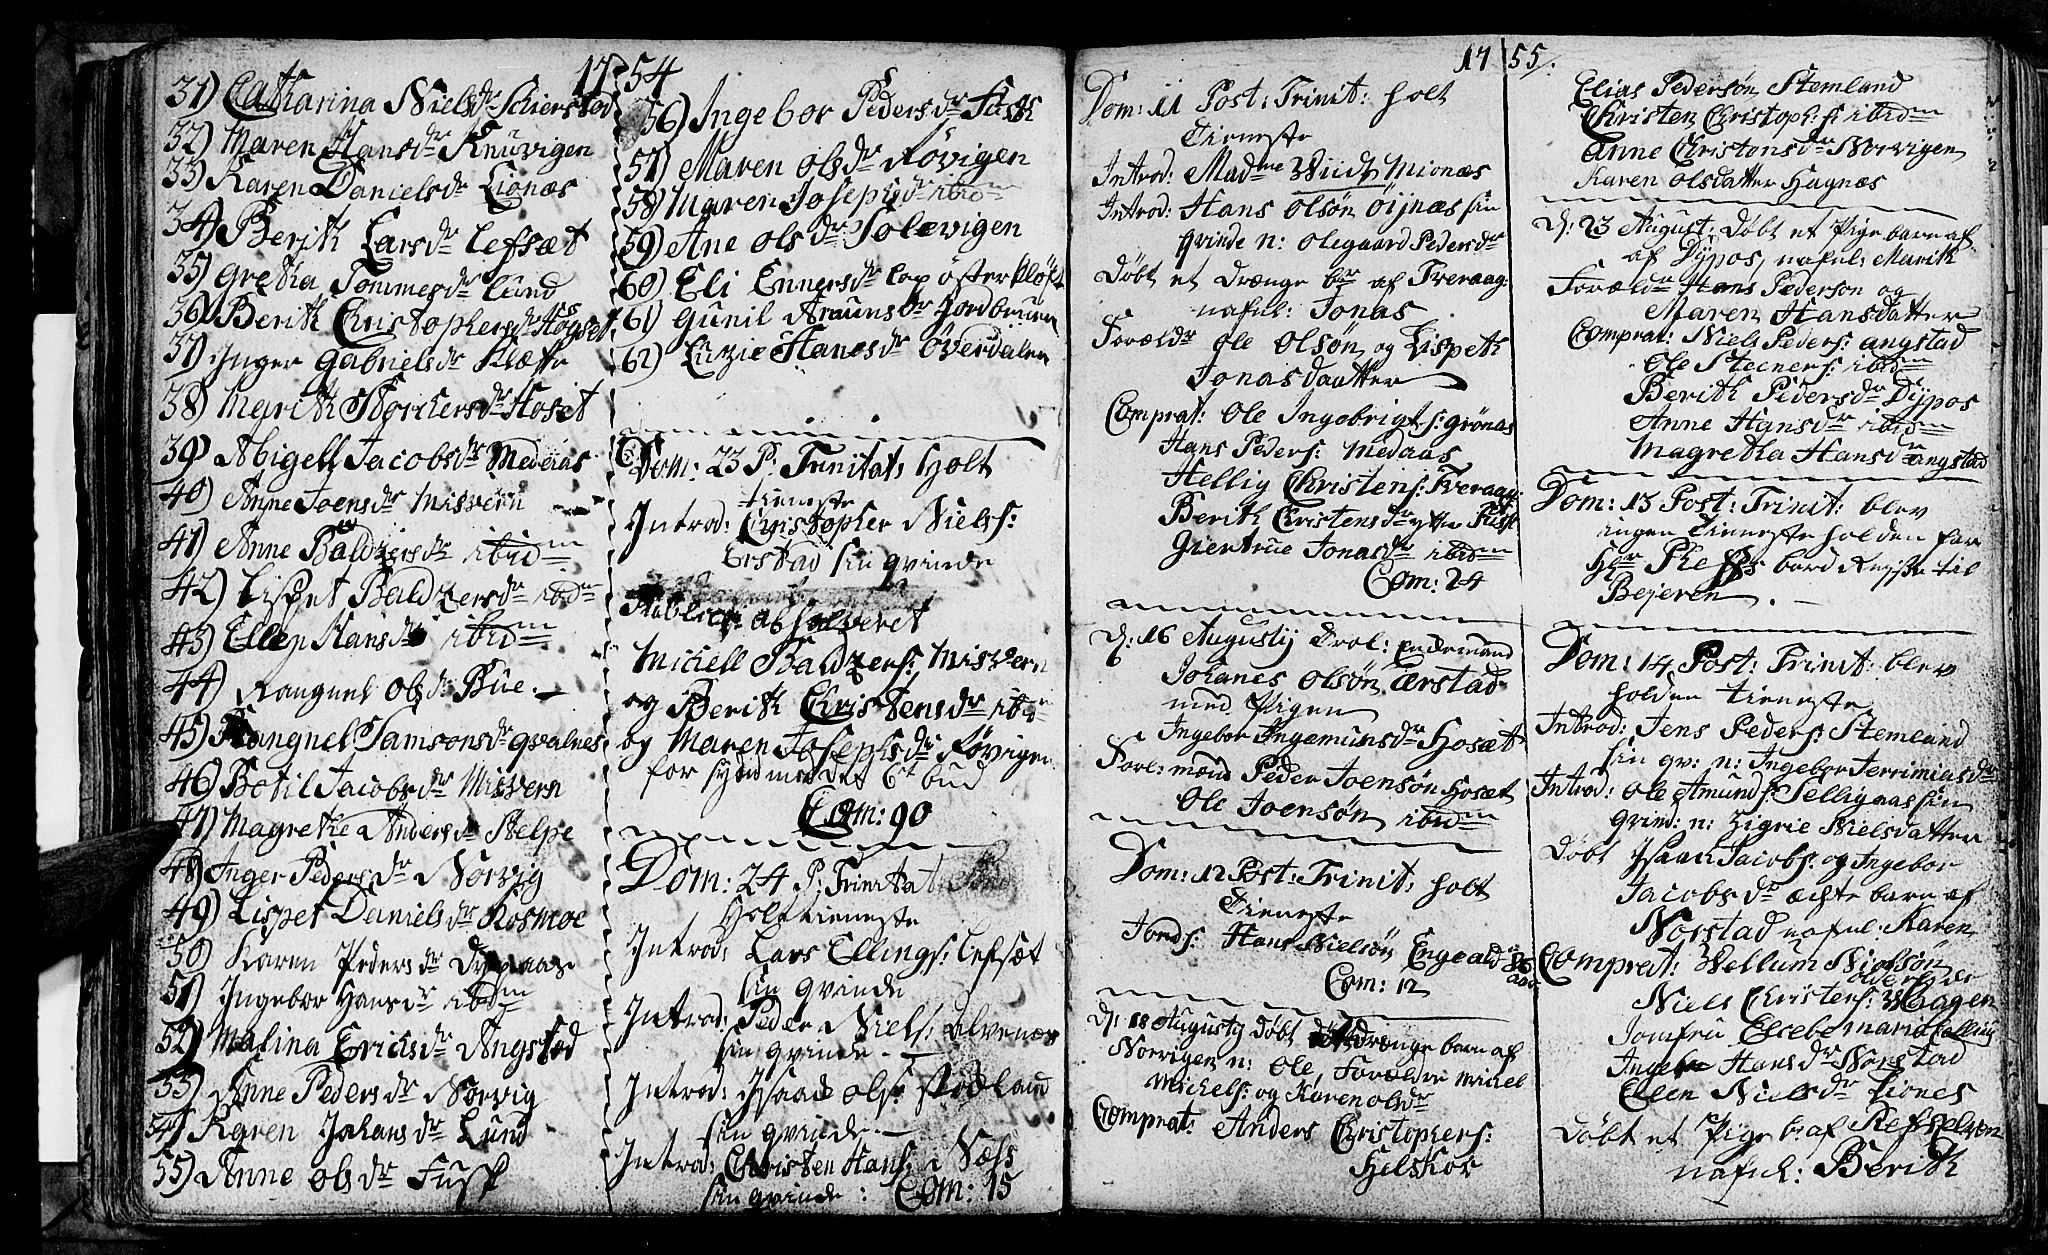 1754
31) Catharina Nielsdr Schierstad
32) Maren Hansdr Knuvigen
33) Karen Danielsdr Lionæs
34) Berith Larsdr Lefsæt
35) gretha Tommesdr Lund
36) Berith Christophersdr Høgset
37) Inger gabrielsdr Klætte
38) Marith Storchersdr Hoset
39) Abigell Jacobsdr Medaas
40) Anne Joensdr Misvern
41) Anne Baldzersdr ibidm
42) Lispet Baldzersdr ibidm
43) Ellen Hansdr ibidm
44) Rangnel olsdr Bue
45) Rangnel Samsonsdr qvalnes
46) Botil Jacobsdr Misvern
47) Magrethe Andersdr Stelpe
48) Inger Pedersdr Norvig
49) Lispet Danielsdr Kosmoe
50) Karen Pedersdr
51) Ingebor Hansdr ibidm
52) Malina Erichsdr Angstad
53) Anne Pedersdr Norvig
54) Karen Johansdr Lund
55) Anne olsdr Fusk
56) Ingebor Pedersdr Fusk
57) Maren olsdr Røvigen
58) Maren Josephsdr ibidm
59) Ane olsdr Solevigen
60) Eli Ennersdr
61) gunil Araunsdr Jordbruen
62) Luzie Hansdr Øverdalen
Dom: 23 P: Trinitat: holt
tieneste
Introd: Christopher Niels:
Erstad sin qvinde
Publice: absolveret
Michell Baldzers: Misvern
og Berith Christensdr ibidm
og Maren Josephsdr Røvigen
for synd mod det 6te bud
Com: 90
Dom: 24 P: Trinitat:
Holt tieneste
Introd: Lars Ellings: Lefsæt
sin qvinde
Introd: Peder Niels: Alvenæs
sin qvinde
Introd: Isaac ols: Stodland
sin qvinde
Introd: Christen Hans: Næss
sin qvinde: Com: 15
1755:
Dom: 11 Post: Trinit: holt
Tieneste
Introd: Madme Wiids Mionæs
Introd: Hans Olsøn Øijnæs sin
qvinde n: Olegaard Pedersdr
Døbt et drænge br af Tveraag:
nafnl: Jonas
Forældr Ole Olsøn og Lispeth
Jonasdaatter
Comprat: Ole Ingebrigts: grønas
Hans Peders: Medaas
Hellig Christens: Tveraag:
Berith Christensdr ytter Fusk
Giertrue Jonasdr ibidm
Com: 24
D: 16 Augustij Trol: Enckemand
Johanes Olsøn Ærstad
med Pigen
Ingebor Ingemunsdr Hosæt
Forl: mænd Peder Joensøn Hosæt
Ole Joensøn ibidm
Dom: 12 Post: Trinit: holt
Tieneste
Jords: Hans Nielsøn Engeald
Com: 12
D: 18 Augustij Døbt drænge barn af
Norvigen n: Ole, Forældre Mickel
Michels: og Karen olsdr
Comprat: Anders Christophers:
Helskor
Elias Pedersøn Stemland
Christen Christoph: s: ibidm
Anne Christensdr Norvigen
Karen Olsdatter Hagnæs
D: 23 August: Døbt et Pige barn af
af Dypos, nafnl: Marith
Forældr Hans Pederson og
Maren Hansdatter
Comprat: Niels Peders: angstad
Ole Steeners: ibidm
Berith Pedersdr Dijpos
Anne Hansdr ibidm
Magretha Hansdr angstad
Dom: 13 Post: Trinit: blev
ingen Tieneste holden for
Hr bord Reyste til
Bejeren
Dom: 14 Post: Trinit: blev
holden tieneste
Introd: Jens Peders: Stemland
sin qv: n: Ingebor Jerrimiasdr
Introd: Ole Amunds: Selligaas sin
qvind: n: Zigrie Nielsdatter
Døbt Isaach Jacobs: og Ingebor
Jacobsdr ægte barn af
Norstad nafnl: Karen
Comprat: Wellum Nielsøn
Niels Christens: Hagen
Jomfru Elsebe maria Colling
Ingebr Hansdr Norstad
Ellen Nielsdr Liones
Døbt et Pige b: af
nafnl: Berith